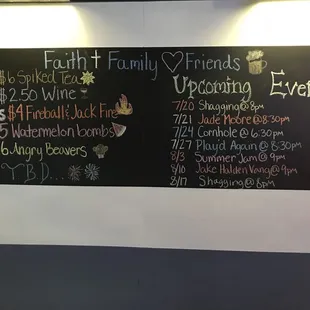 Faith Family Friends
$6 Spiked Tea
$2.50 Wine
$4 Fireball & Jack Fire
5 Watermelon bombs
6 Angry Beavers
YBD...
Upcoming Even
7/20 Shagging @ 8pm
7/21 Jade Moore @ 8:30pm
7/24 Cornhole @ 6:30pm
7/27 Play'd Again @ 8:30pm
8/3 Summer Jam @ 9pm
8/10 Jake Halden Vang @ 9pm
8/17 Shagging @ 8pm